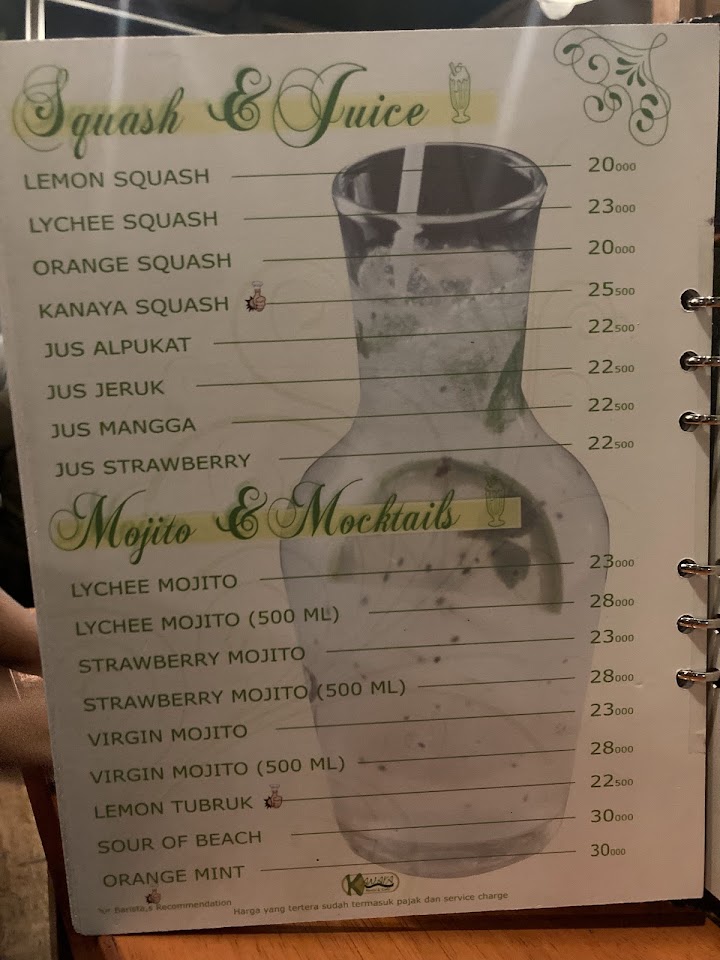 Squash & Juice
LEMON SQUASH 20000
LYCHEE SQUASH 23000
ORANGE SQUASH 20000
KANAYA SQUASH 25500
JUS ALPUKAT 22500
JUS JERUK 22500
JUS MANGGA 22500
JUS STRAWBERRY 22500
Mojito & Mocktails
LYCHEE MOJITO 23000
LYCHEE MOJITO (500 ML) 28000
STRAWBERRY MOJITO 23000
STRAWBERRY MOJITO (500 ML) 28000
VIRGIN MOJITO 23000
VIRGIN MOJITO (500 ML) 28000
LEMON TUBRUK 22500
SOUR OF BEACH 30000
ORANGE MINT 30000
Barista,s Recommendation
Harga yang tertera sudah termasuk pajak dan service charge